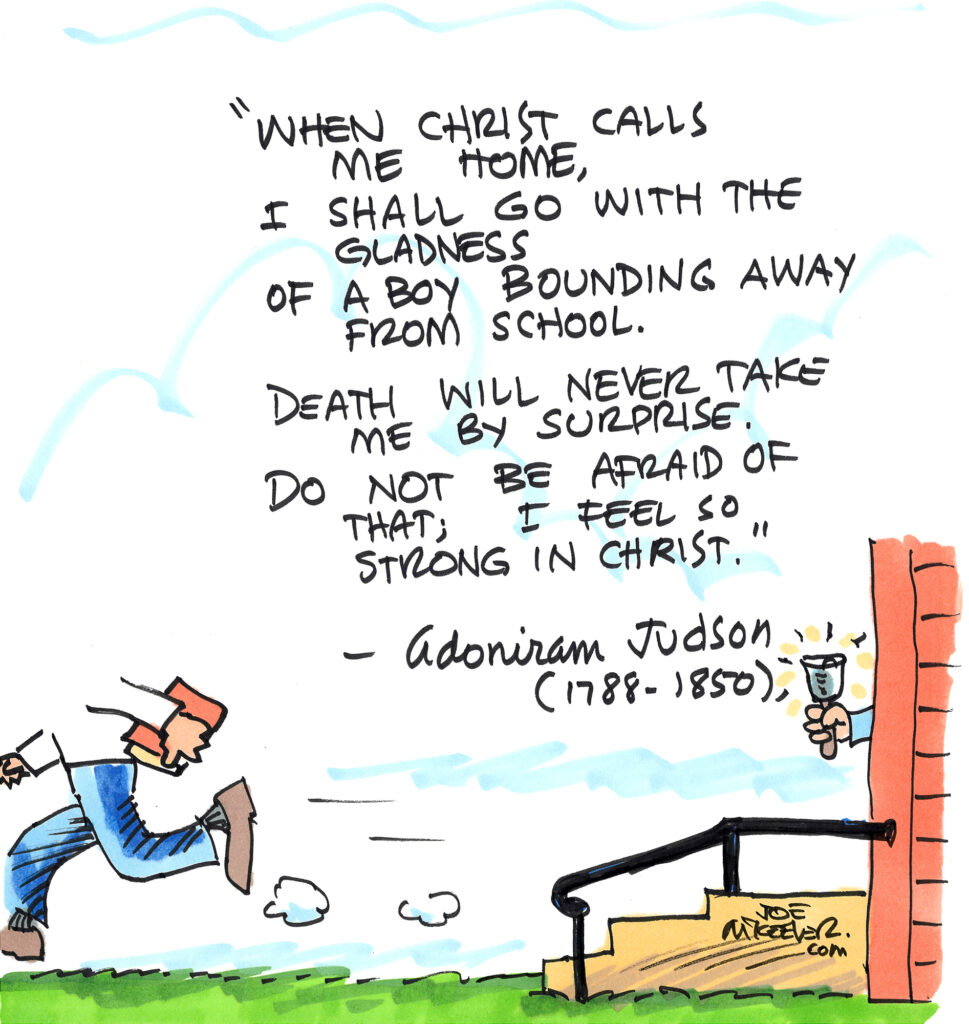 "WHEN CHRIST CALLS
ME HOME,
I SHALL GO WITH THE
GLADNESS
OF A BOY BOUNDING AWAY
FROM SCHOOL.
DEATH WILL NEVER TAKE
ME BY SURPRISE.
DO NOT BE AFRAID OF
THAT; I FEEL SO
STRONG IN CHRIST."
— Adoniram Judson
(1788-1850),
JOE
MCKEEVER.
com